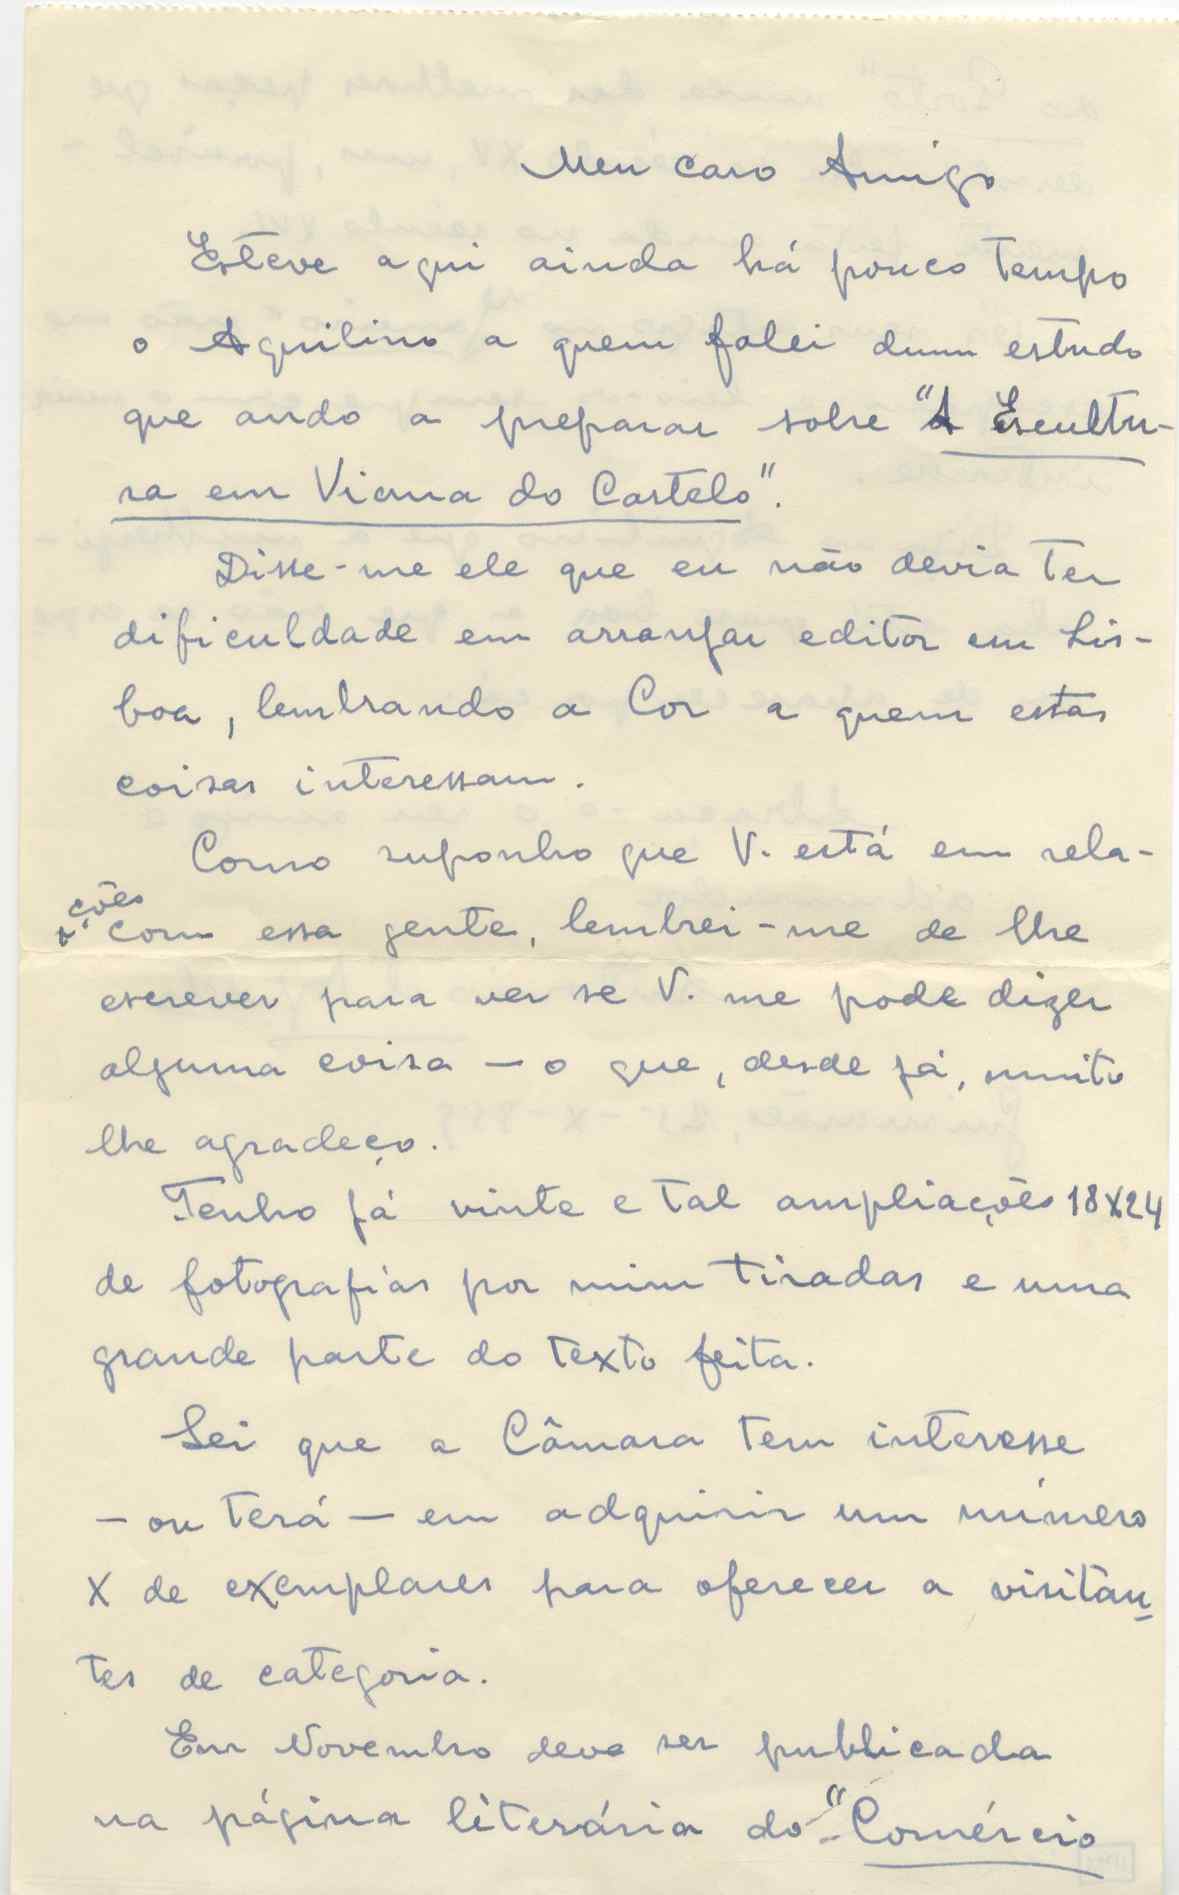 Meu caro Amigo
Esteve aqui ainda há pouco tempo
o Aquilino a quem falei dum estudo
que ando a preparar sobre "A Escultu-
ra em Viana do Castelo".
Disse-me ele que eu não devia ter
dificuldade em arranjar editor em Lis-
boa, lembrando a Cor a quem estas
coisas interessam.
Como suponho que V. está em rela-
ções com essa gente, lembrei-me de lhe
escrever para ver se V. me pode dizer
alguma coisa — o que, desde já, muito
lhe agradeço.
Tenho já vinte e tal ampliações 18X24
de fotografias por mim tiradas e uma
grande parte do texto feita.
Sei que a Câmara tem interesse
— ou terá — em adquirir um número
X de exemplares para oferecer a visitan-
tes de categoria.
Em Novembro deve ser publicada
na página literária do "Comércio